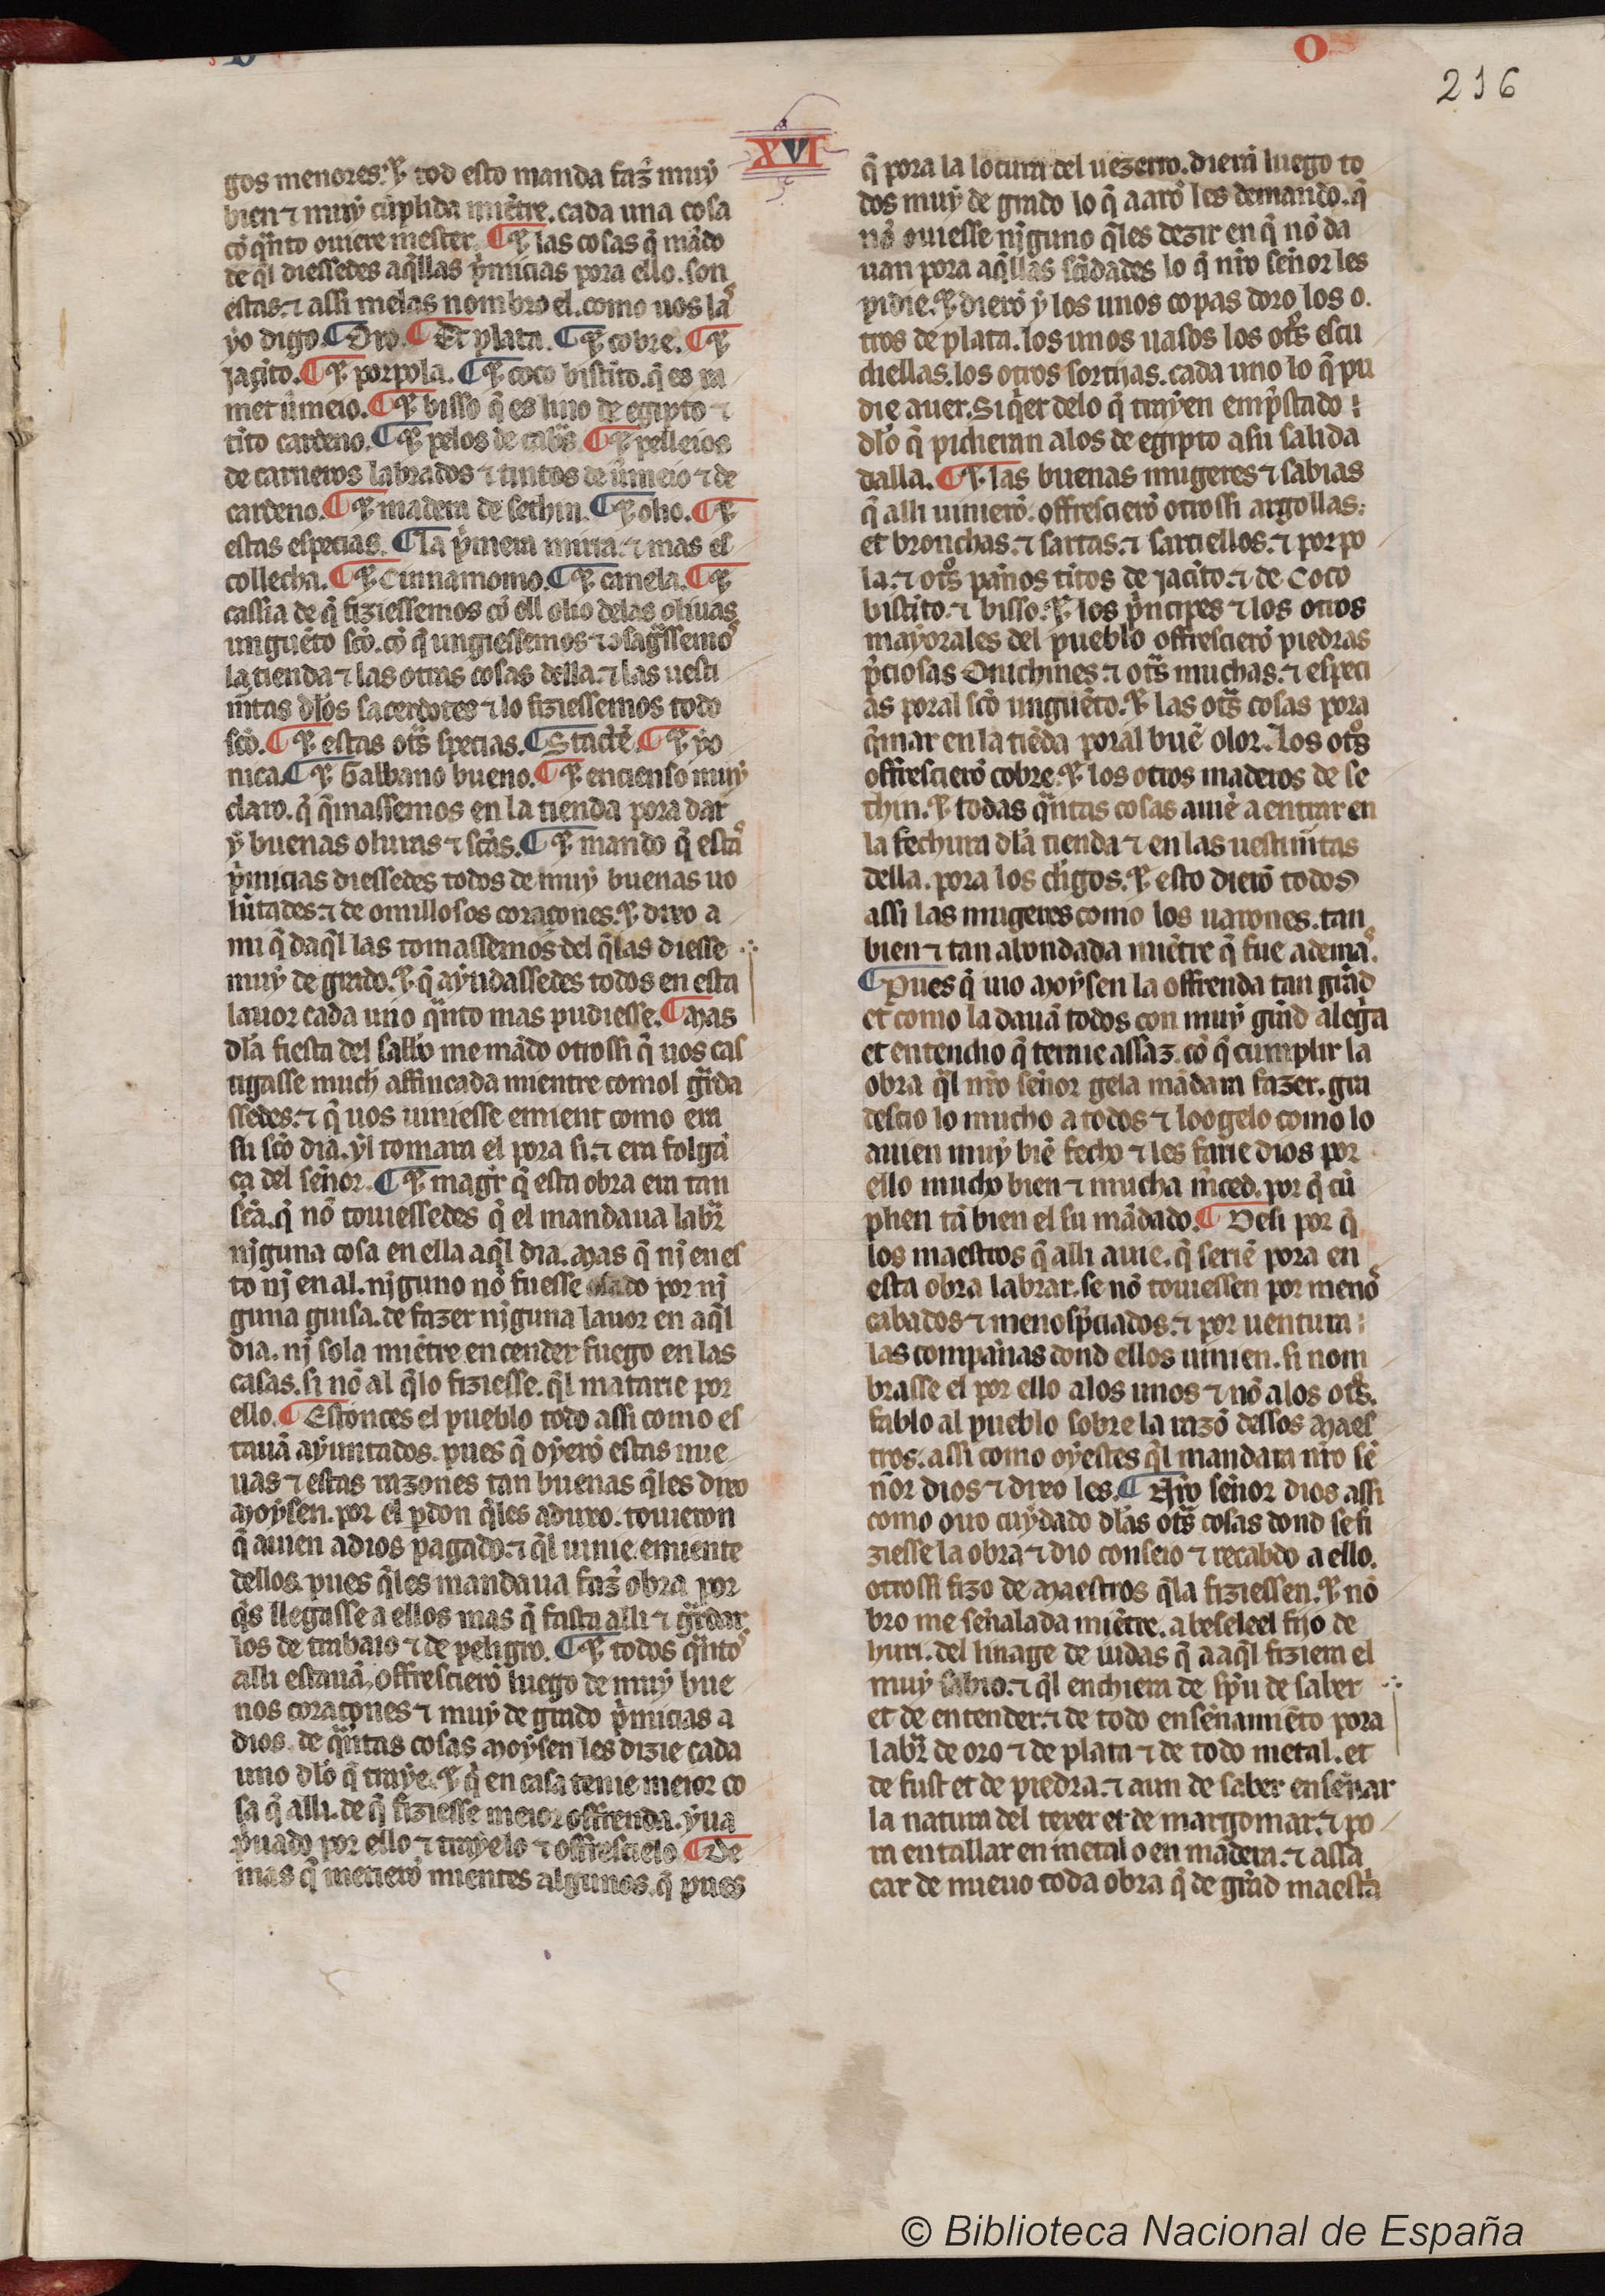 O
216
XVI
gos menores. ⁊ tod esto manda faz̃ muẏ
bien ⁊ muẏ cũplida miẽtre. cada una cosa
cõ q̃nto ouiere mester. ¶ ⁊ las cosas q̃ mãdo
de q̃l diessedes aq̃llas p̃micias pora ello. son
estas. ⁊ assi melas nombro el. como uos las
ẏo digo. ¶ Oro. ¶ Et plata. ¶ ⁊ cobre. ¶ ⁊
jacĩto. ¶ ⁊ porpola. ¶ ⁊ coco bistĩto. q̃ es ra
mer ũmeio. ¶ ⁊ bisso q̃ es lino de egipto ⁊
tĩto cardeno. ¶ ⁊ pelos de cabr̃s ¶ ⁊ pelleios
de carneros labrados ⁊ tintos de ũmeio ⁊ de
cardeno. ¶ ⁊ madera de sethin. ¶ ⁊ olio. ¶ ⁊
estas especias. ¶ La p̃mera mirra. ⁊ mas es
collecha. ¶ ⁊ Cinnamomo. ¶ ⁊ canela. ¶ ⁊
cassia de q̃ fiziessemos cõ ell olio delas oliuas
unguẽto sc̃o. cõ q̃ ungiessemos ⁊ ↄsagr̃ssemos
la tienda ⁊ las otras cosas della. ⁊ las uesti
mẽtas dlos sacerdotes ⁊ lo fiziessemos todo
sc̃o. ¶ ⁊ estas otr̃s specias. ¶ Stactẽ. ¶ ⁊ ẏo
nica. ¶ ⁊ Galbano bueno. ¶ ⁊ encienso muẏ
claro. q̃ q̃massemos en la tienda pora dar
ẏ buenas oluras ⁊ sc̃as. ¶ ⁊ mando q̃ estas
p̃micias diessedes todos de muẏ buenas uo
lũtades. ⁊ de omillosos coraçones. ⁊ dixo a
mi q̃ daq̃l las tomassemos del q̃las diesse
muẏ de grado. ⁊ q̃ aẏudassedes todos en esta
lauor cada uno q̃nto mas pudiesse. ¶ Mas
dla fiesta del sabbo me mãdo otrossi q̃ uos cas
tigasse much affincada mientre comol gr̃da
ssedes. ⁊ q̃ uos uiniesse emient como era
su sc̃o dia. ẏl tomara el pora si. ⁊ era folgã
ça del señor. ¶ ⁊ magr̃ q̃ esta obra era tan
sc̃a. q̃ nõ touiessedes q̃ el mandaua labr̃
njguna cosa en ella aq̃l dia. Mas q̃ nj en es
to nj en al. njguno nõ fuesse osado por nj
guna guisa. de fazer njguna lauor en aq̃l
dia. nj sola miẽtre encender fuego en las
casas. si nõ al q̃lo fiziesse. q̃l matarie por
ello. ¶ Estonces el pueblo todo assi como es
tauã aẏuntados. pues q̃ oẏerõ estas nue
uas ⁊ estas razones tan buenas q̃les dixo
Moẏsen. por el p̃don q̃les aduxo. touieron
q̃ auien adios pagado. ⁊ q̃l uinie emiente
dellos. pues q̃les mandaua faz̃ obra por
q̃s llegasse a ellos mas q̃ fasta alli ⁊ gr̃dar
los de trabaio ⁊ de peligro. ¶ ⁊ todos q̃ntos
alli estauã. offrescierõ luego de muẏ bue
nos coraçones ⁊ muẏ de grado p̃micias a
dios. de q̃ntas cosas Moẏsen les dizie cada
uno dlo q̃ traẏe. ⁊ q̃ en casa tenie meior co
sa q̃ alli. de q̃ fiziesse meior offrenda. ẏua
p̃uado por ello ⁊ traẏelo ⁊ offrescielo ¶ De
mas q̃ metierõ mientes algunos. q̃ pues
q̃ pora la locura del uezerro. dierã luego to
dos muẏ de grado lo q̃ aarõ les demando. q̃
nõ ouiesse njguno q̃les dezir en q̃ nõ da
uan pora aq̃llas sc̃idades lo q̃ nr̃o señor les
pidie. ⁊ dierõ ẏ los unos copas doro los o.
tros de plata. los unos uasos los otr̃s escu
diellas. los otros sortijas. cada uno lo q̃ pu
die auer. Siq̃er delo q̃ traẏen emp̃stado :
dlo q̃ pidieran alos de egipto asu salida
dalla. ¶ ⁊ las buenas mugeres ⁊ sabias
q̃ alli uinierõ. offrescierõ otrossi argollas.
et bronchas. ⁊ sartas. ⁊ sarciellos. ⁊ porpo
la. ⁊ otr̃s paños tĩtos de jacĩto. ⁊ de Coco
bistĩto. ⁊ bisso. ⁊ los p̃ncipes ⁊ los otros
maẏorales del pueblo offrescierõ piedras
p̃ciosas Onichines. ⁊ otr̃s muchas. ⁊ especi
as poral sc̃o unguẽto. ⁊ las otr̃s cosas pora
q̃mar en la tiẽda poral buẽ olor. Los otr̃s
offrescierõ cobre. ⁊ los otros maderos de se
thin. ⁊ todas q̃ntas cosas auiẽ a entrar en
la fechura dla tienda ⁊ en las uestimẽtas
della. pora los cl̃igos. ⁊ esto dierõ todos
assi las mugeres como los uarones. tan
bien ⁊ tan abondada miẽtre q̃ fue ademas.
¶ Pues q̃ uio Moẏsen la offrenda tan grãd
et como la dauã todos con muẏ grãd alegr̃a
et entendio q̃ ternie assaz. cõ q̃ cumplir la
obra q̃l nr̃o señor gela mãdara fazer. gra
descio lo mucho a todos ⁊ loogelo como lo
auien muẏ biẽ fecho ⁊ les farie dios por
ello mucho bien ⁊ mucha m̃ced. por q̃ cũ
plien tã bien el su mãdado. ¶ Desi por q̃
los maestros q̃ alli auie. q̃ seriẽ pora en
esta obra labrar. se nõ touiessen por menos
cabados ⁊ menosp̃ciados. ⁊ por uentura :
las compañas dond ellos uinien. si nom
brasse el por ello alos unos ⁊ nõ alos otr̃s.
fablo al pueblo sobre la razõ dessos Maes
tros. assi como oẏestes q̃l mandara nr̃o se
ñor dios ⁊ dixo les. ¶ Nr̃o señor dios assi
como ouo cuẏdado dlas otr̃s cosas dond se fi
ziesse la obra ⁊ dio conseio ⁊ recabdo a ello.
otrossi fizo de Maestros q̃la fiziessen. ⁊ nõ
bro me señalada miẽtre. a beseleel fijo de
huri. del linage de iudas q̃ aaq̃l fiziera el
muẏ sabio. ⁊ q̃l enchiera de sp̃u de saber
et de entender. ⁊ de todo enseñamiẽto pora
labr̃ de oro ⁊ de plata ⁊ de todo metal. et
de fust et de piedra. ⁊ aun de saber enseñar
la natura del texer et de margomar. ⁊ po
ra entallar en metal o en madera. ⁊ assa
car de nueuo toda obra q̃ de grãd maestr̃a
© Biblioteca Nacional de España